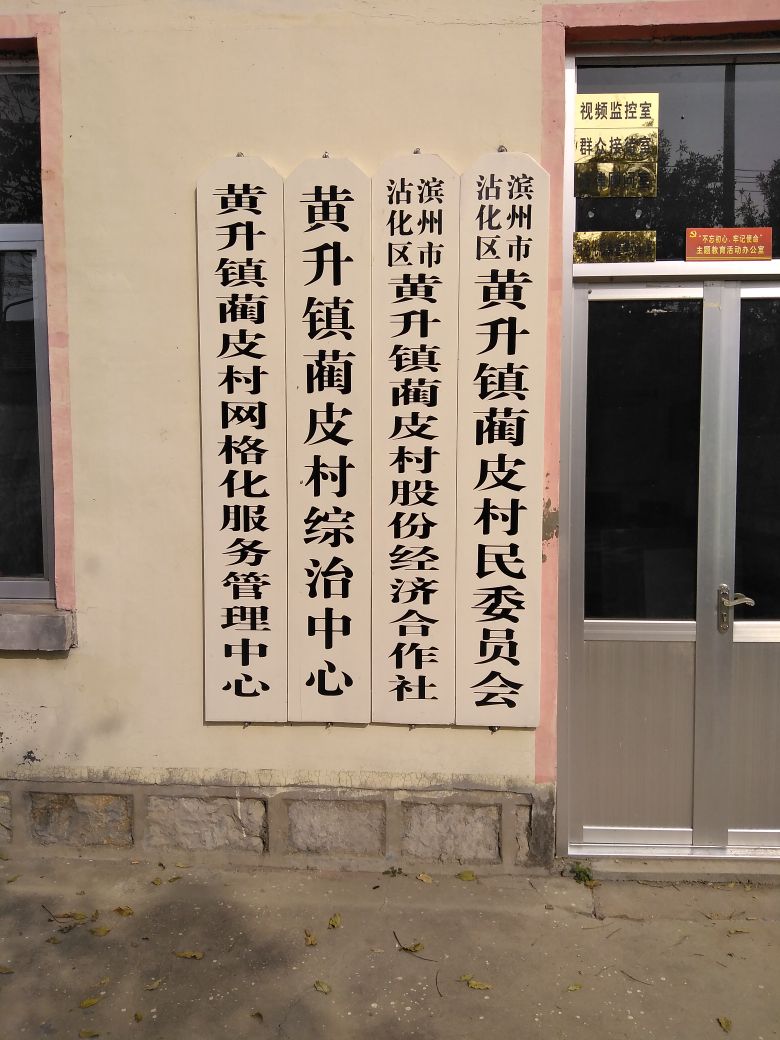 滨州市
沾化区
黄升镇蔺皮村民委员会
滨州市
沾化区
黄升镇蔺皮村股份经济合作社
黄升镇蔺皮村综治中心
黄升镇蔺皮村网格化服务管理中心
视频监控室
群众接待室
“不忘初心、牢记使命”
主题教育活动办公室